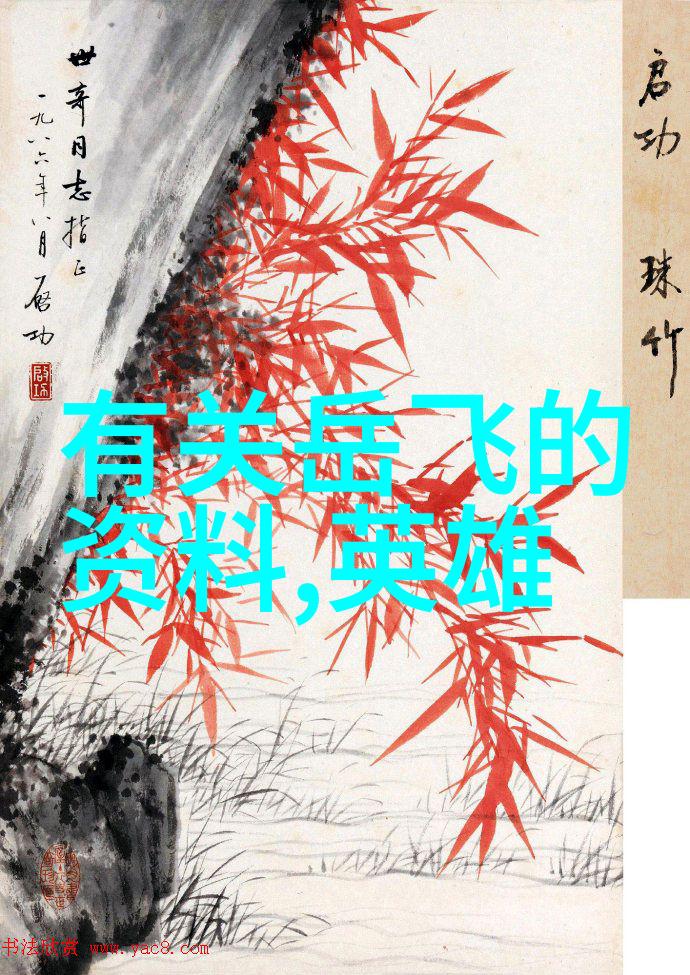 世奇同志指正
一九八六年八月 启功
启功
启功 珠竹
有关岳飞的
资料,英雄
书法欣赏 www.yac8.com